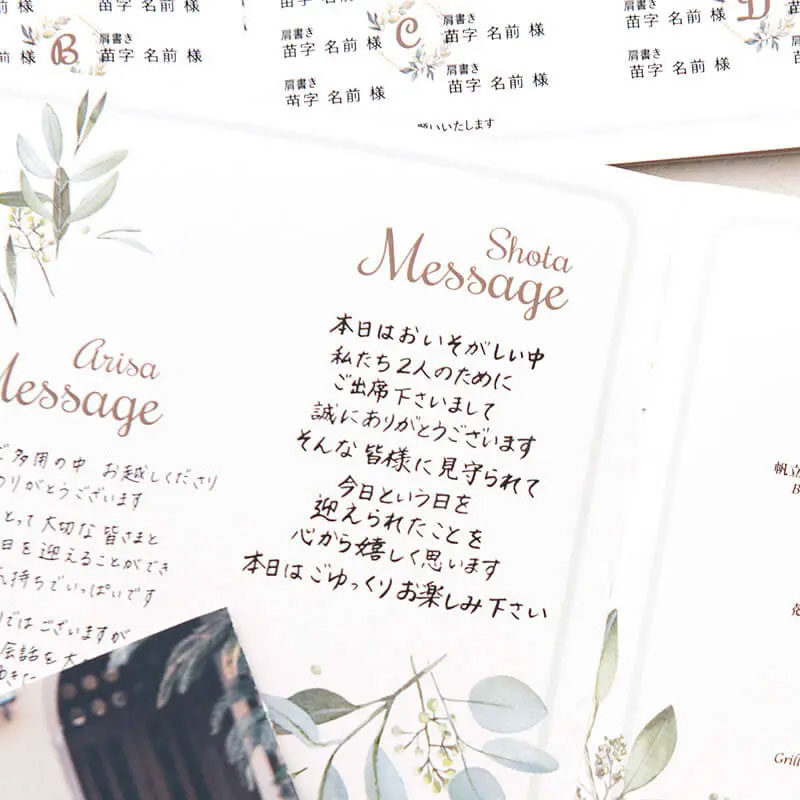 肩書き
苗字 名前 様
B
苗字 名前 様
肩書き
苗字 名前 様
苗字 名前 様
肩書き
苗字 名前 様
C
肩書き
苗字 名前 様
肩書き
苗字 名前 様
肩書き
苗字 名前 様
肩書き
苗字 名前 様
D
いいたします
Arisa
Message
多用の中 お越しくださり
りがとうございます
とって大切な皆さまと
日を迎えることができ
持ちでいっぱいです
ではございますが
会話を大
Shota
Message
本日はおいそがしい中
私たち2人のために
ご出席下さいまして
誠にありがとうございます
そんな皆様に見守られて
今日という日を
迎えられたことを
心から嬉しく思います
本日はごゆっくりお楽しみ下さい
帆立
B
Grill